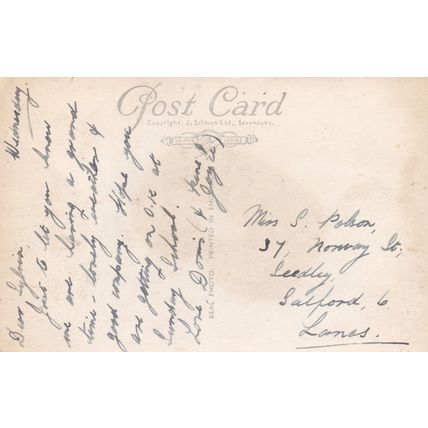 Post Card
Copyright. J. Salmon Ltd., Sevenoaks.
SALMON SERIES
REAL PHOTO. PRINTED IN ENGLAND
Wednesday.
Dear Sylvia
Just to let you know
we are having a grand
time - lovely weather &
good company. Hope you
are getting on O.K at
Sunday School.
Love Doris (&
Miss S. Polson,
37, Norway St,
Seedley,
Salford, 6
Lancs.